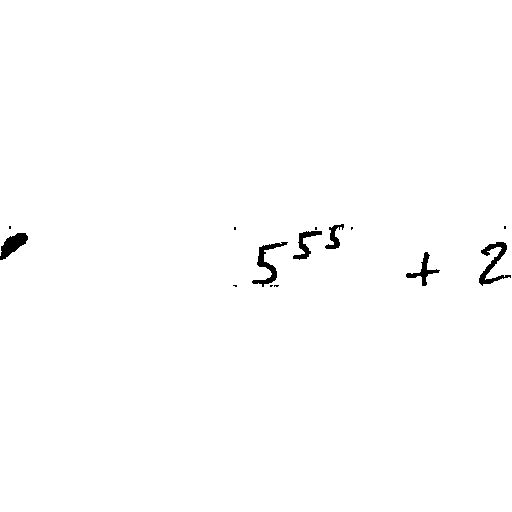 5^5^5 + 2